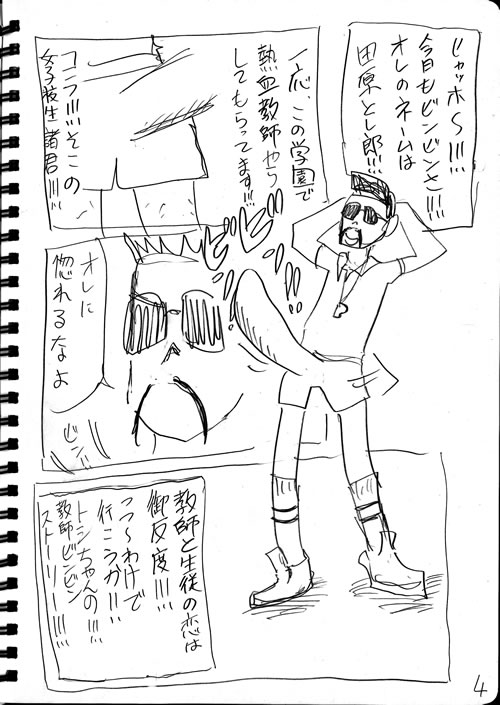 ヒャッホ〜!!!
今日もビンビンさ!!!
オレのネームは
田原とし郎!!!
一応、この学園で
熱血教師やら
してもらってます!!!
コラ!!!そこの
女子校生諸君!!!
ビビビ!!
オレに
惚れるなよ
ビン!!
教師と生徒の恋は
御反度!!!
っつ〜わけで
行こうか!!
トシちゃんの!!!
教師ビンビン
ストーリー!!!
4